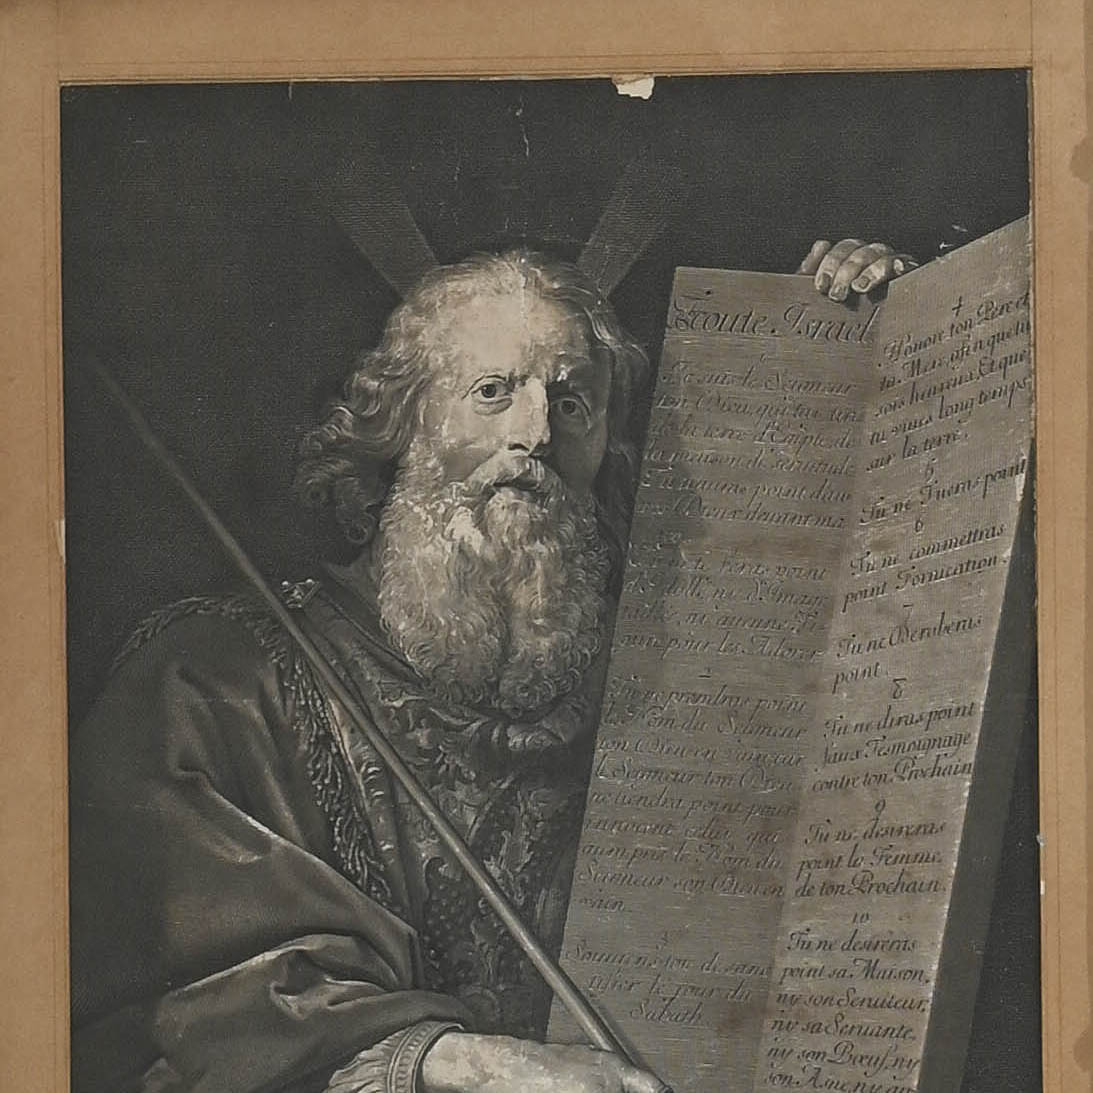 Ecoute Israel
1
Je suis le Seigneur
ton Dieu, qui t'ai tiré
de la terre d'Egipte de
la maison de seruitude
Tu n'auras point d'au
tres Dieux deuant ma
point
d'Idolle, ni d'Image
taillée, ni aucune Fi-
gure pour les Adorer
2
Tu ne prendras point
le Nom du Seigneur
ton Dieu en vain, car
le Seigneur ton Dieu
ne tiendra point pour
innocent celuy qui
aura pris le Nom du
Seigneur son Dieu en
vain.
3
Souuiens toy de sanc
tifier le jour du
Sabath.
4
Honore ton Pere et
ta Mere, afin que tu
sois heureux Et que
tu viues long temps,
sur la terre.
5
Tu ne Tueras point
6
Tu ne commettras
point Fornication.
7
Tu ne Deroberas
point.
8
Tu ne diras point
faux Tesmoignage
contre ton Prochain
9
Tu ne desireras
point la Femme
de ton Prochain.
10
Tu ne desireras
point sa Maison,
ny son Seruiteur,
ny sa Seruante,
ny son Bœuf, ny
son Asne, ny au